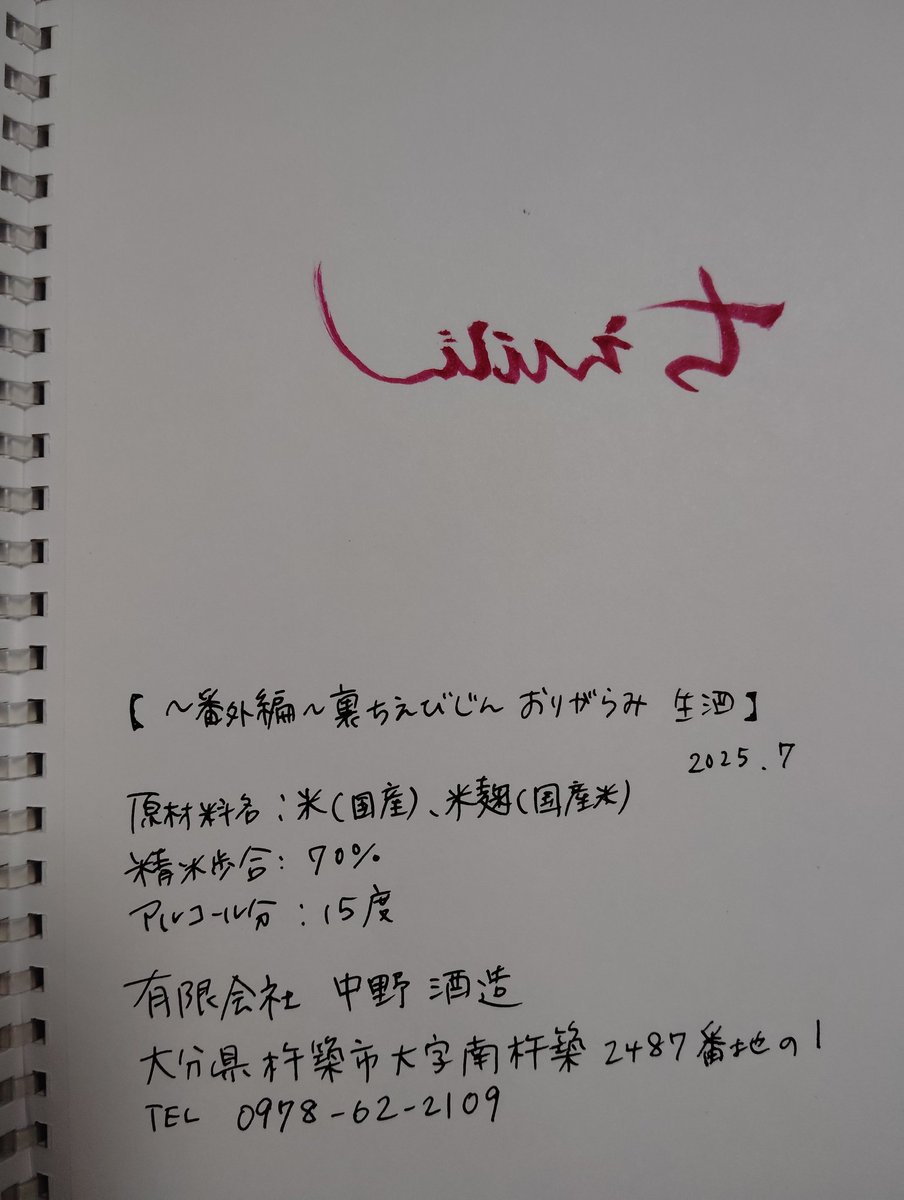 ちえびじん
【～番外編～裏ちえびじん おりがらみ 生酒】
2025.7
原材料名：米(国産)、米麹(国産米)
精米歩合：70%
アルコール分：15度
有限会社 中野酒造
大分県杵築市大字南杵築2487番地の1
TEL 0978-62-2109